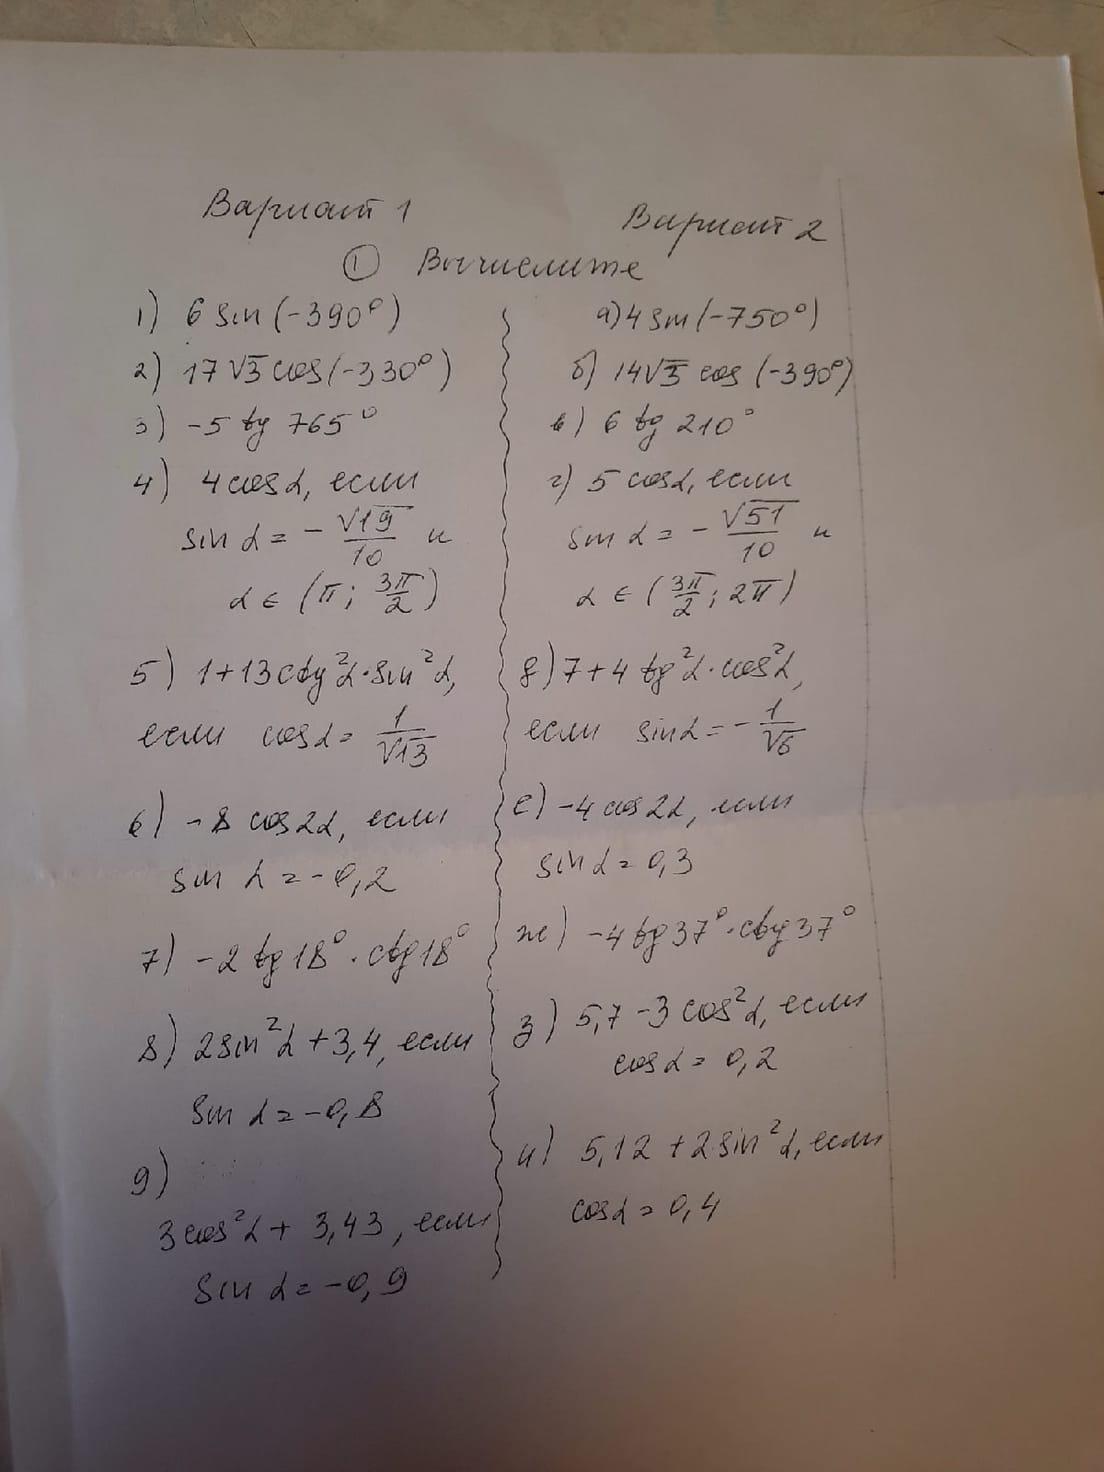 Вариант 1
Вариант 2
① Вычислите
1) 6 sin (-390°)
2) 17√3 cos (-330°)
3) -5 tg 765°
4) 4 cos α, если
sin α = - √19/10 и
α ∈ (π; 3π/2)
5) 1+13 ctg²α · sin²α,
если cos α = 1/√13
6) -8 cos 2α, если
sin α = -0,2
7) -2 tg 18° · ctg 18°
8) 2 sin²α + 3,4, если
sin α = -0,8
9)
3 cos²α + 3,43, если
sin α = -0,9
а) 4 sin (-750°)
б) 14√3 cos (-390°)
в) 6 tg 210°
г) 5 cos α, если
sin α = - √51/10 и
α ∈ (3π/2; 2π)
д) 7 + 4 tg²α · cos²α,
если sin α = - 1/√6
е) -4 cos 2α, если
sin α = 0,3
ж) -4 tg 37° · ctg 37°
з) 5,7 - 3 cos²α, если
cos α = 0,2
и) 5,12 + 2 sin²α, если
cos α = 0,4